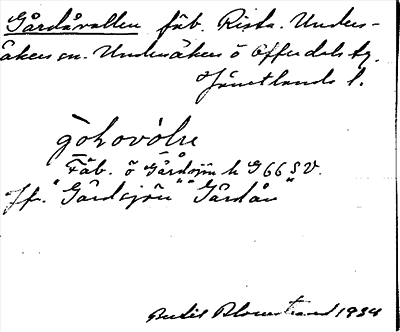 Gårdåvallen fäb. Rista. Unders-
åkers sn. Undersåkers o Offerdals tg.
Jämtlands l.
Fäb. ö Gårdsjön k G66 SV.
Jfr. "Gårdsjön" "Gårdån"
Bertil Blomstrand 1934